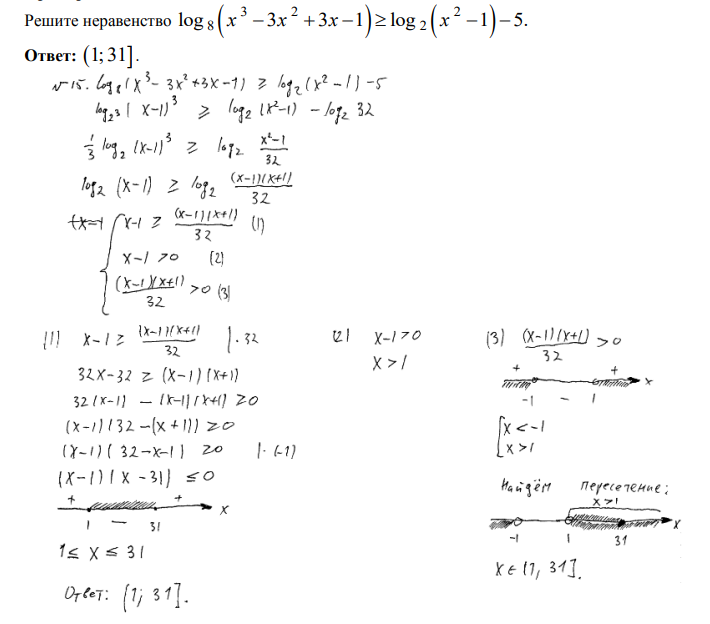 Решите неравенство log₈(x³ − 3x² + 3x − 1) ≥ log₂(x² − 1) − 5.
Ответ: (1; 31].
№15. log₈(x³ − 3x² + 3x − 1) ≥ log₂(x² − 1) − 5
log₂³(x−1)³ ≥ log₂(x²−1) − log₂ 32
1/3 log₂(x−1)³ ≥ log₂ (x²−1)/32
log₂(x−1) ≥ log₂ ((x−1)(x+1))/32
{ x−1 ≥ ((x−1)(x+1))/32 (1)
x−1 > 0 (2)
((x−1)(x+1))/32 > 0 (3)
(1) x−1 ≥ ((x−1)(x+1))/32 |·32
32x−32 ≥ (x−1)(x+1)
32(x−1) − (x−1)(x+1) ≥ 0
(x−1)(32−(x+1)) ≥ 0
(x−1)(32−x−1) ≥ 0 |·(−1)
(x−1)(x−31) ≤ 0
+ − + x
1 31
1 ≤ x ≤ 31
Ответ: (1; 31].
(2) x−1 > 0
x > 1
(3) ((x−1)(x+1))/32 > 0
+ − + x
−1 1
[ x < −1
x > 1
Найдём пересечение:
x > 1
−1 1 31 x
x ∈ (1, 31].